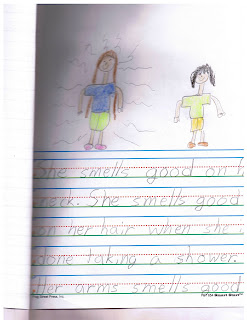 She smells good on h
neck. She smells good
on her hair when she
done taking a shower.
Her arms smells good
Street Press, Inc.